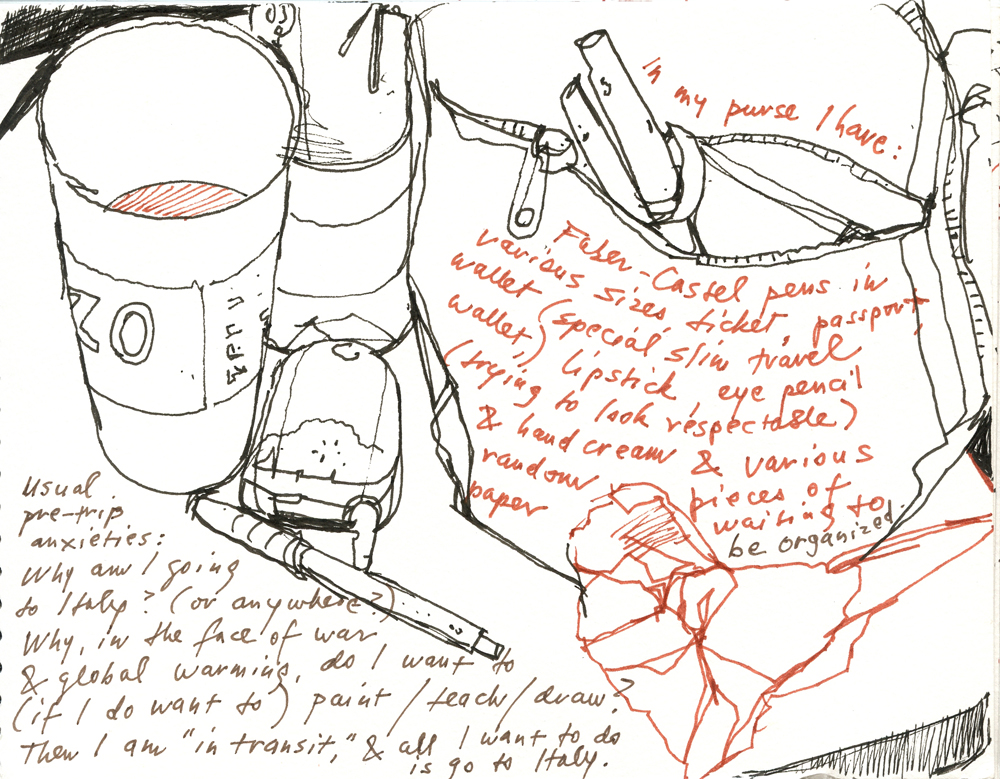 ZO
in my purse I have:
Faber-Castel pens in
various sizes, ticket, passport,
wallet (special slim travel
wallet,) lipstick, eye pencil
(trying to look respectable)
& hand cream & various
random pieces of
paper waiting to
be organized.
Usual
pre-trip
anxieties:
Why am I going
to Italy? (or anywhere?)
Why, in the face of war
& global warming, do I want to
(if I do want to) paint/teach/draw?
Then I am "in transit," & all I want to do
is go to Italy.